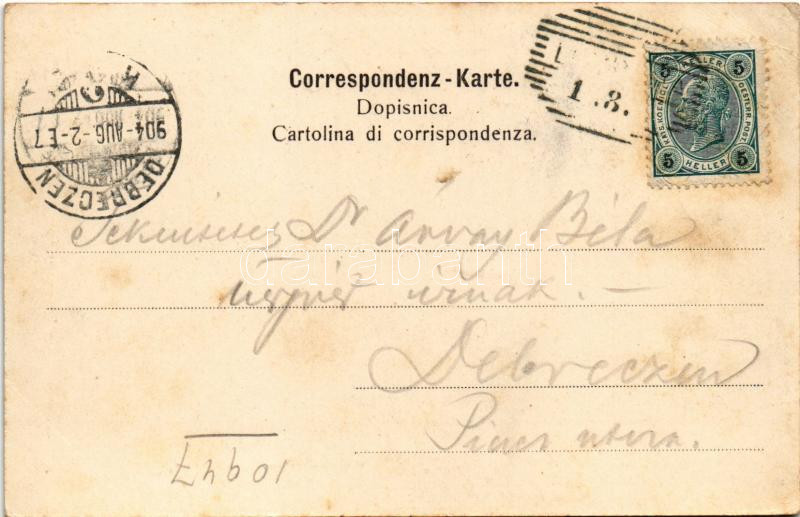 Correspondenz-Karte.
Dopisnica.
Cartolina di corrispondenza.
1.8.
5 HELLER 5
KAIS. KOENIGL. OESTERR. POST.
5 HELLER 5
904 AUG -2-E7
DEBRECZEN
Dr Árvay Béla
ügyvéd úrnak. –
Debreczen
Piacz utcza.
10947
darabanth